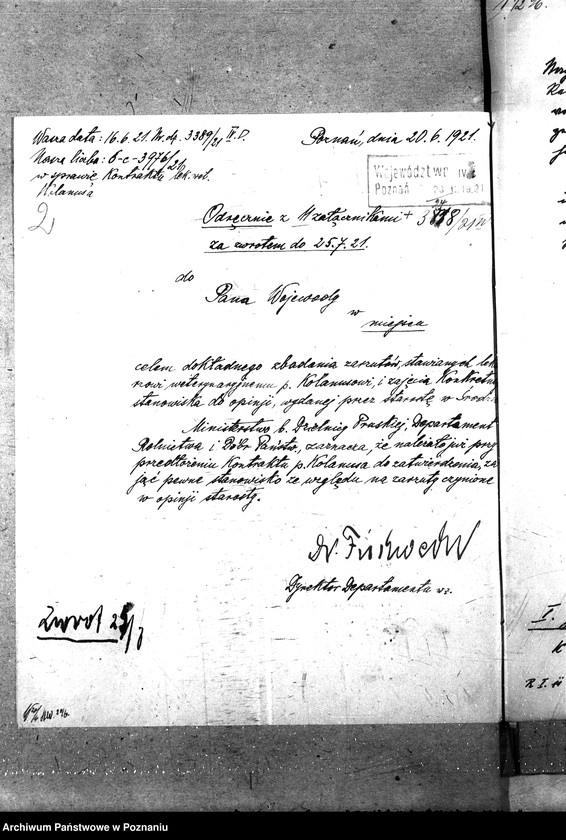 Wasza data: 16.6.21. Nr. dz. 3389/21 IV.D.
Nasza liczba: 6-c-3976/21
w sprawie Kontraktu lek. wet.
Kolanusa
2
Poznań, dnia 20.6.1921.
Województwo
Poznań
Odręcznie z 11 załącznikami
za zwrotem do 25.7.21.
do
Pana Wojewody
w
miejscu
celem dokładnego zbadania zarzutów, stawianych lek
rzowi weterynaryjnemu p. Kolanusowi, i zajęcia Konkretn
stanowiska do opinji, wydanej przez starostę w Środzie
Ministerstwo b. Dzielnicy Pruskiej Departament
Rolnictwa i Dóbr Państw. zaznacza, że należało już przy
przedłożeniu Kontraktu p. Kolanusa do zatwierdzenia, za
jąć pewne stanowisko ze względu na zarzuty czynione
w opinji starosty.
Dyrektor Departamentu
Zwrot 25/7
I.
R. I.
Archiwum Państwowe w Poznaniu